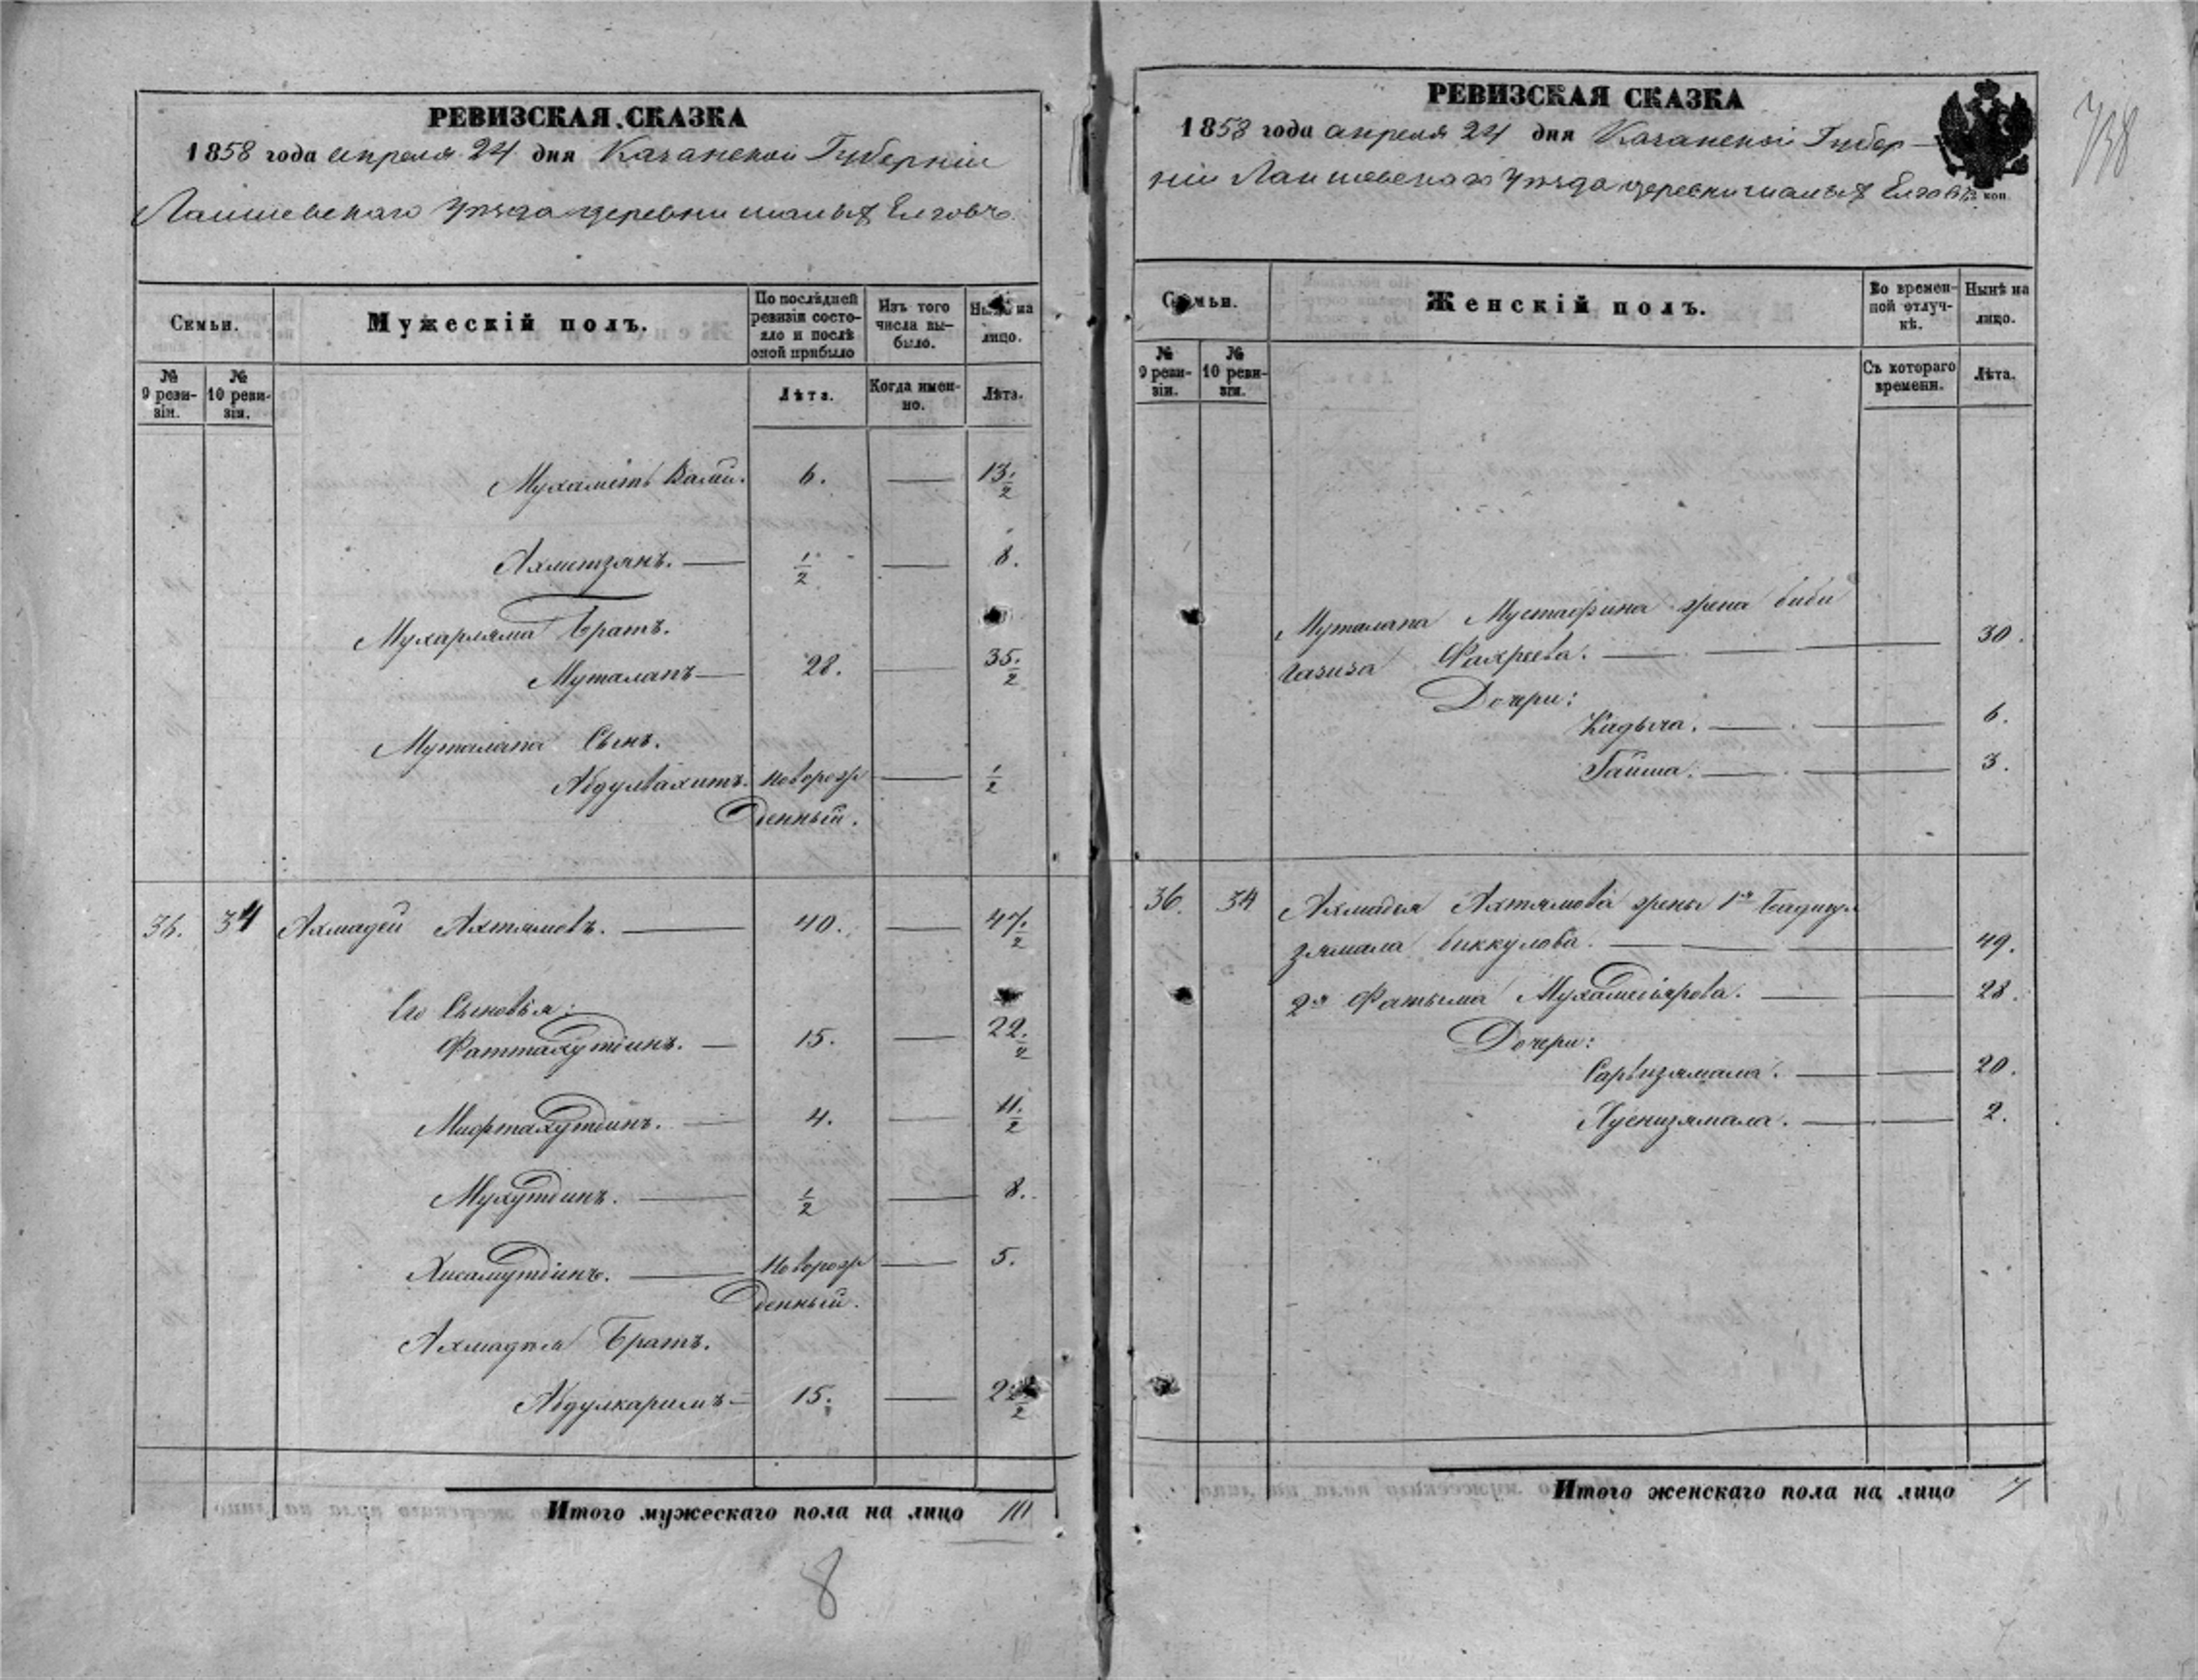 РЕВИЗСКАЯ СКАЗКА
1858 года апреля 24 дня Казанской Губерніи
Лаишевскаго Уѣзда деревни малыхъ Елговъ
Семьи.
Мужескій полъ.
По послѣдней ревизіи состояло и послѣ оной прибыло
Изъ того числа выбыло.
Нынѣ на лицо.
№ 9 ревизіи.
№ 10 ревизіи.
Лѣта.
Когда именно.
Лѣта.
Мухаметь Вали. 6. — 13 1/2
Ахметзянъ. — 1/2 — 8.
Мухарляма Братъ.
Муталапъ — 28. — 35 1/2
Муталапа Сынъ.
Абдулвахитъ. Новорож — 1/2
денный.
36. 34 Ахмадей Ахтямовъ. — 40. — 47 1/2
Его Сыновья:
Фаттахутдинъ. — 15. — 22 1/2
Мифтахутдинъ. — 4. — 11 1/2
Мухутдинъ. — 1/2 — 8.
Хисамутдинъ. — Новорож — 5.
денный.
Ахмадѣя Братъ.
Абдулкаримъ — 15. — 22 1/2
Итого мужескаго пола на лицо 10
8
РЕВИЗСКАЯ СКАЗКА
1858 года апреля 24 дня Казанской Губер-
ніи Лаишевскаго Уѣзда деревни малыхъ Елговъ
коп.
738
Семьи.
Женскій полъ.
Во временной отлучкѣ.
Нынѣ на лицо.
№ 9 ревизіи.
№ 10 ревизіи.
Съ котораго времени.
Лѣта.
Муталапа Мустафина жена биби
Газиза Фахреева. — 30.
Дочери:
Кадыча. — 6.
Гайша. — 3.
36. 34 Ахмадея Ахтямова жены 1я
зямала биккулова. — 49.
2я Фатыма Мухаметярова. — 28.
Дочери:
Сарвизямала. — 20.
Хуснизямала. — 2.
Итого женскаго пола на лицо 7